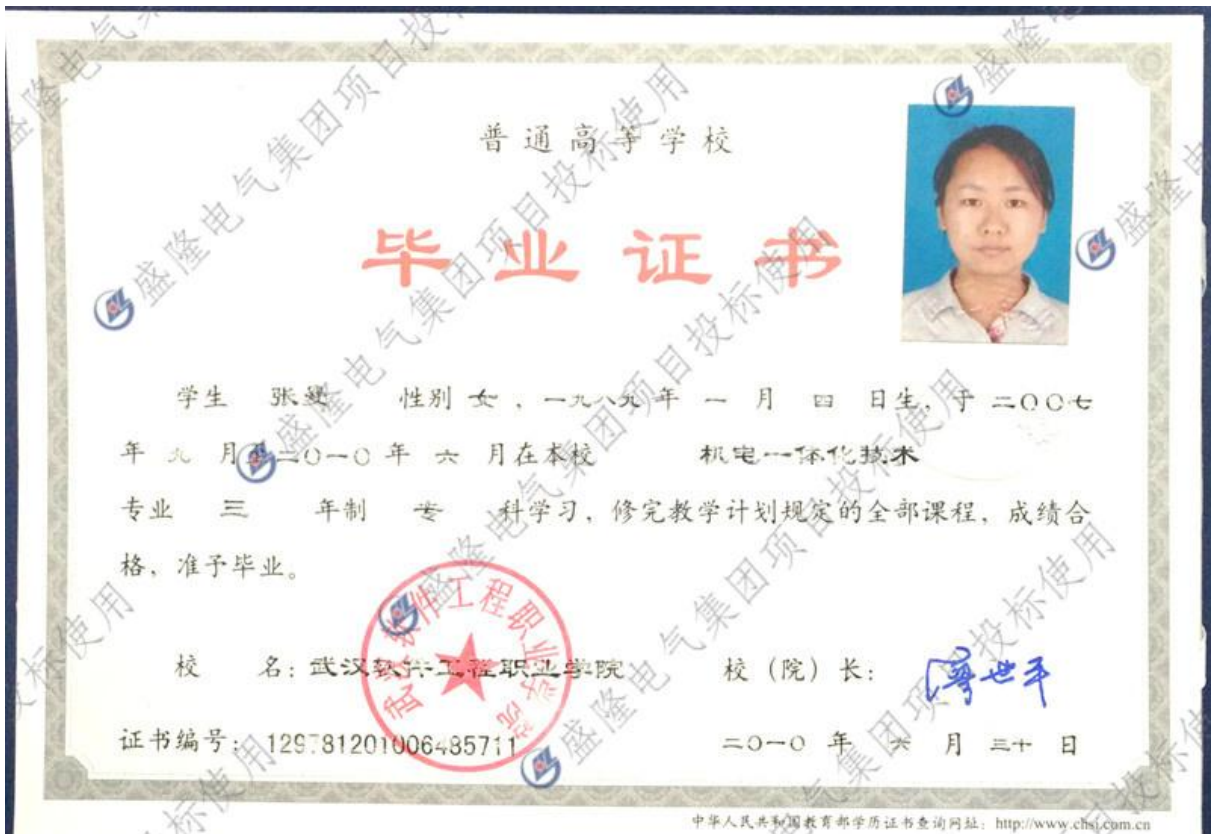 普通高等学校
毕业证书
学生 张 性别 女，一九八九年 一 月 四 日生，于 二〇〇七
年 九 月至二〇一〇年 六 月在本校 机电一体化技术
专业 三 年制 专 科学习，修完教学计划规定的全部课程，成绩合
格，准予毕业。
校 名：武汉软件工程职业学院
校（院）长：
廖世平
证书编号：129781201006485711
二〇一〇 年 六 月 三十 日
武汉软件工程职业学院
中华人民共和国教育部学历证书查询网址：http://www.chsi.com.cn
盛隆电气集团项目投标使用
盛隆电气集团项目投标使用
盛隆电气集团项目投标使用